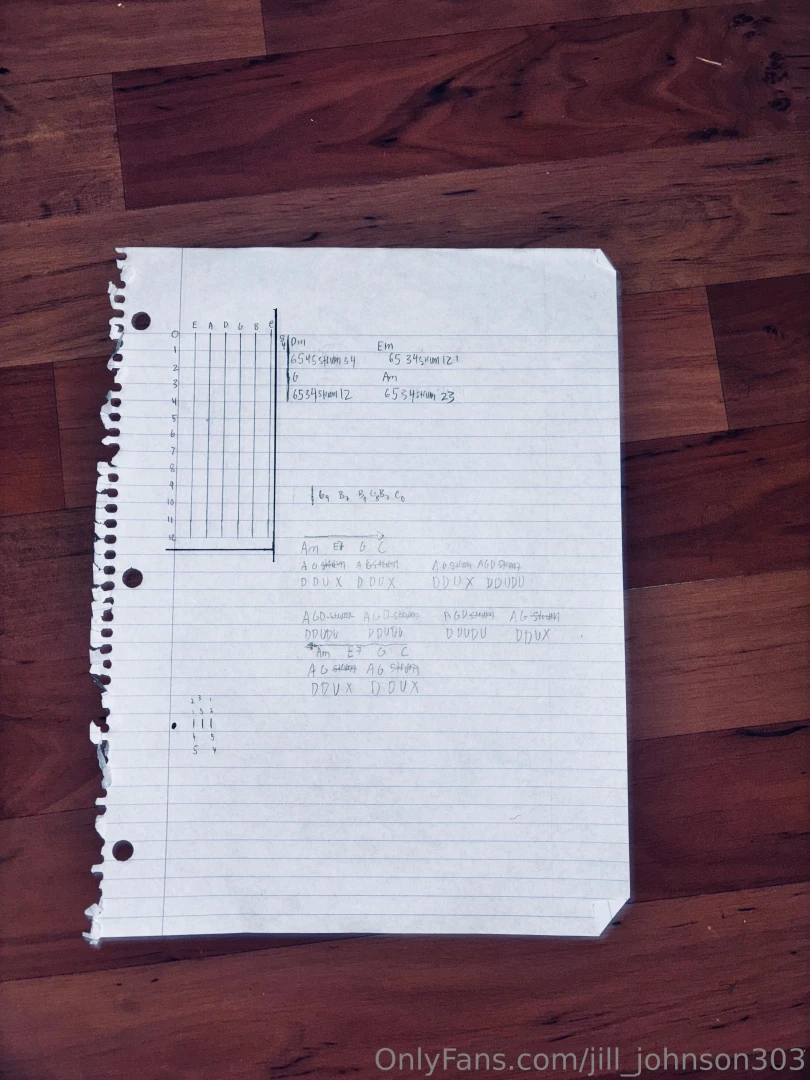 E A D G B e
0
1
2
3
4
5
6
7
8
9
10
11
12
Dm Em
6545 strum 34 65 34 strum 12
G Am
6534 strum 12 6534 strum 23
Am E7 G C
AG strum AG strum AG strum AGD strum
DDUX DDUX DDUX DDUDU
AGD strum AGD strum AGD strum AG strum
DDUDU DDUDU DDUDU DDUX
Am E7 G C
AG strum AG strum
DDUX DDUX
2 3 1
1 3 2
4 5
5 4
OnlyFans.com/jill_johnson303